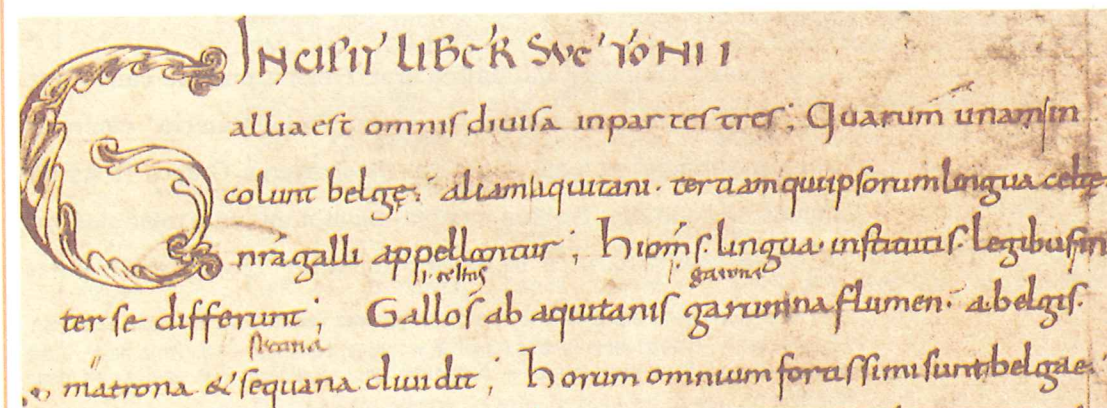 INCIPIT LIBER SUETONII
Gallia est omnis divisa in partes tres; Quarum unam in
colunt belgę; aliam aquitani. tertiam qui ipsorum lingua celtę.
nr̄a galli appellantur; hi om̄s. lingua. institutis. legibus in
ter se differunt; Gallos ab aquitanis garunna flumen. a belgis.
garonna
secana
matrona & sequana dividit; horum omnium fortissimi sunt belgae.